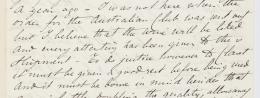 a year ago - I was not here when the
order for the Australian Club was sent out
but I believe that the wine will be liked
and every attention has been given to the
Shipment - To do justice however to Claret
it must be given a good rest before being used
and it must be borne in mind besides that
doubling the quality, allowany